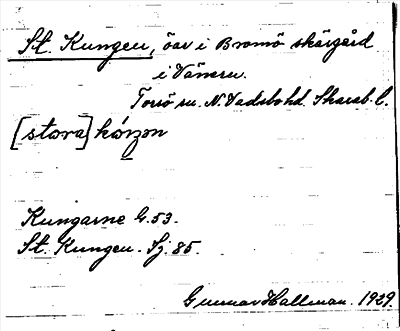 St. Kungen, öar i Bromö skärgård
i Vänern.
Torsö sn. N. Vadsbo hd. Skarab. l.
[stora] kóŋɡen
Kungarne G. 53.
St. Kungen. Sj. 85.
Gunnar Hallman. 1929.